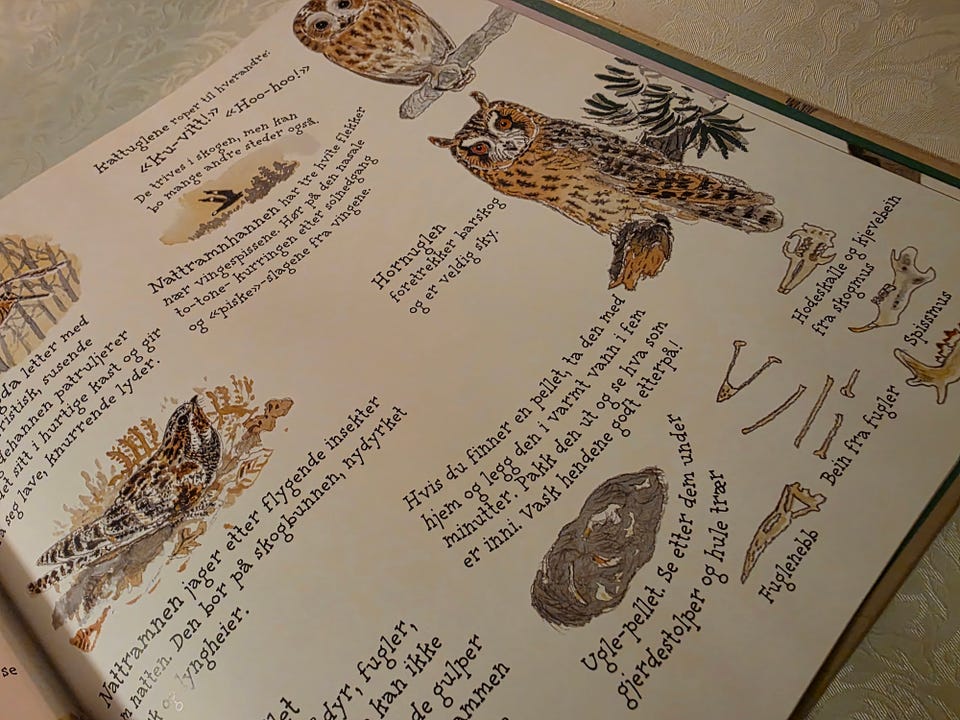 Kattuglene roper til hverandre:
«Ku-vitt!» «Hoo-hoo!»
De trives i skogen, men kan
bo mange andre steder også.
Nattramnhannen har tre hvite flekker
nær vingespissene. Hør på den nasale
to-tone- kurringen etter solnedgang
og «piske»-slagene fra vingene.
Hornuglen
foretrekker barskog
og er veldig sky.
letter med
ristisk, susende
dehannen patruljerer
det sitt i hurtige kast og gir
seg lave, knurrende lyder.
Nattramnen jager etter flygende insekter
m natten. Den bor på skogbunnen, nydyrket
og lyngheier.
Hvis du finner en pellet, ta den med
hjem og legg den i varmt vann i fem
minutter. Pakk den ut og se hva som
er inni. Vask hendene godt etterpå!
Ugle-pellet. Se etter dem under
gjerdestolper og hule trær
Hodeskalle og kjevebein
fra skogmus
Spissmus
Bein fra fugler
Fuglenebb
dyr, fugler,
kan ikke
de gulper
ammen
se